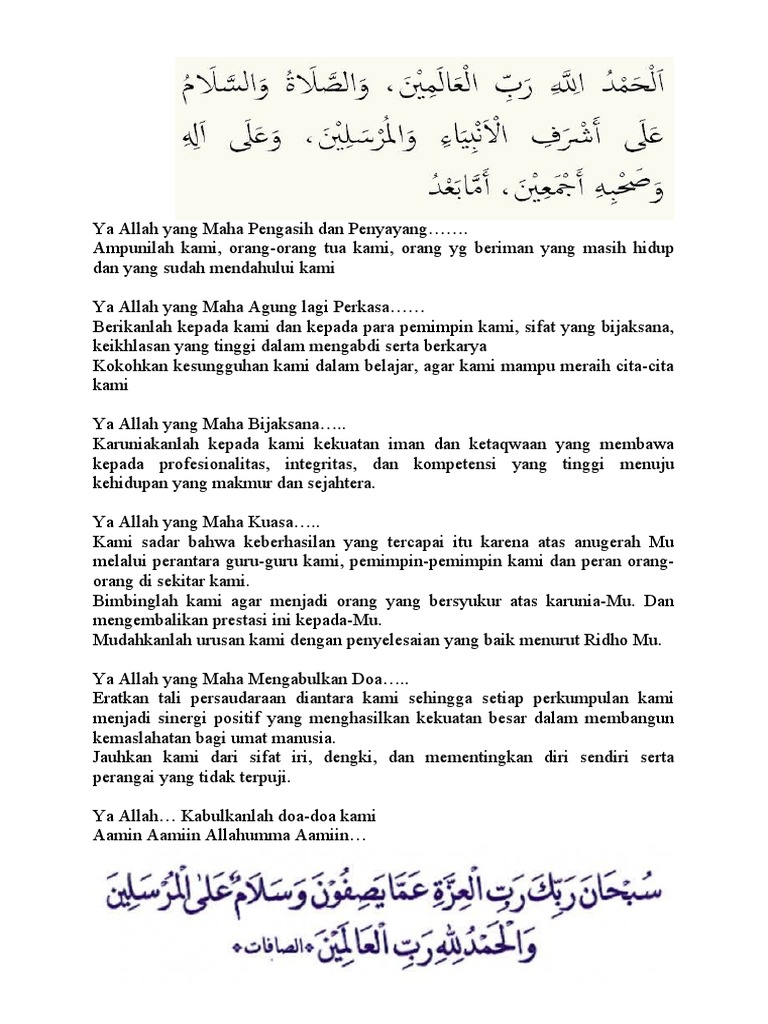 اَلْحَمْدُ اِللَّهِ رَبِّ الْعَالَمِيْنَ، وَالصَّلَاةُ وَالسَّلَامُ
عَلَى أَشْرَفِ الْأَنْبِيَاءِ وَالْمُرْسَلِيْنَ، وَعَلَى اَلِهِ
وَصَحْبِهِ أَجْمَعِيْنَ، أَمَّابَعْدُ
Ya Allah yang Maha Pengasih dan Penyayang…….
Ampunilah kami, orang-orang tua kami, orang yg beriman yang masih hidup
dan yang sudah mendahului kami
Ya Allah yang Maha Agung lagi Perkasa……
Berikanlah kepada kami dan kepada para pemimpin kami, sifat yang bijaksana,
keikhlasan yang tinggi dalam mengabdi serta berkarya
Kokohkan kesungguhan kami dalam belajar, agar kami mampu meraih cita-cita
kami
Ya Allah yang Maha Bijaksana…..
Karuniakanlah kepada kami kekuatan iman dan ketaqwaan yang membawa
kepada profesionalitas, integritas, dan kompetensi yang tinggi menuju
kehidupan yang makmur dan sejahtera.
Ya Allah yang Maha Kuasa…..
Kami sadar bahwa keberhasilan yang tercapai itu karena atas anugerah Mu
melalui perantara guru-guru kami, pemimpin-pemimpin kami dan peran orang-
orang di sekitar kami.
Bimbinglah kami agar menjadi orang yang bersyukur atas karunia-Mu. Dan
mengembalikan prestasi ini kepada-Mu.
Mudahkanlah urusan kami dengan penyelesaian yang baik menurut Ridho Mu.
Ya Allah yang Maha Mengabulkan Doa…..
Eratkan tali persaudaraan diantara kami sehingga setiap perkumpulan kami
menjadi sinergi positif yang menghasilkan kekuatan besar dalam membangun
kemaslahatan bagi umat manusia.
Jauhkan kami dari sifat iri, dengki, dan mementingkan diri sendiri serta
perangai yang tidak terpuji.
Ya Allah… Kabulkanlah doa-doa kami
Aamin Aamiin Allahumma Aamiin…
سُبْحَانَ رَبِّكَ رَبِّ الْعِزَّةِ عَمَّا يَصِفُوْنَ وَسَلَامٌ عَلَى الْمُرْسَلِينَ
وَالْحَمْدُ لِلّٰهِ رَبِّ الْعَالَمِيْنَ *الصافات*